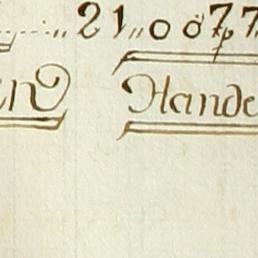 21,,0077
en Hande